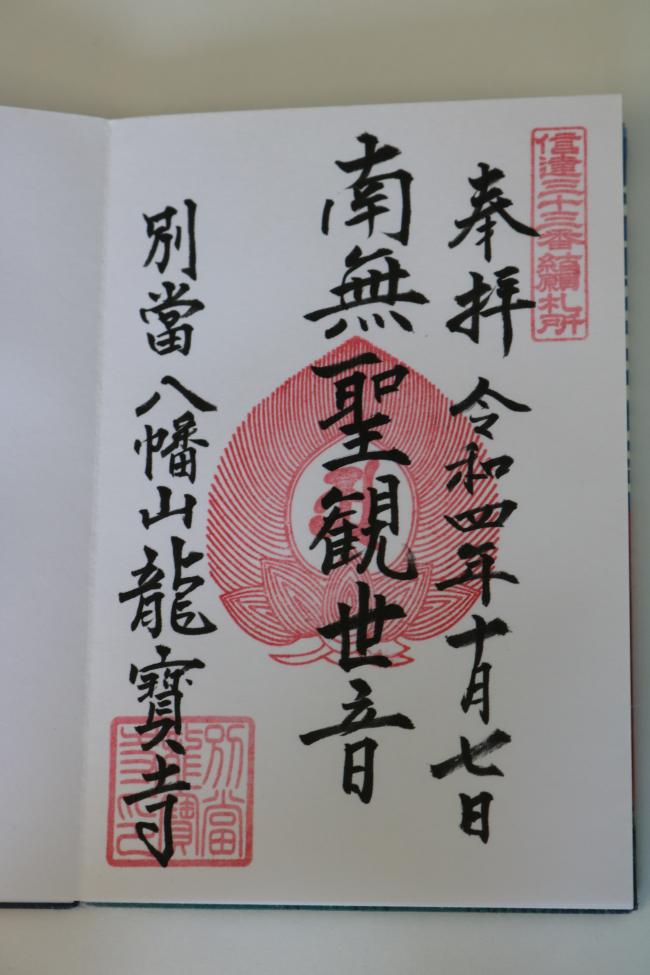 信達三十三番結願札所
奉拝
令和四年十月七日
南無聖観世音
別當八幡山龍寳寺
別當
龍寳
寺印